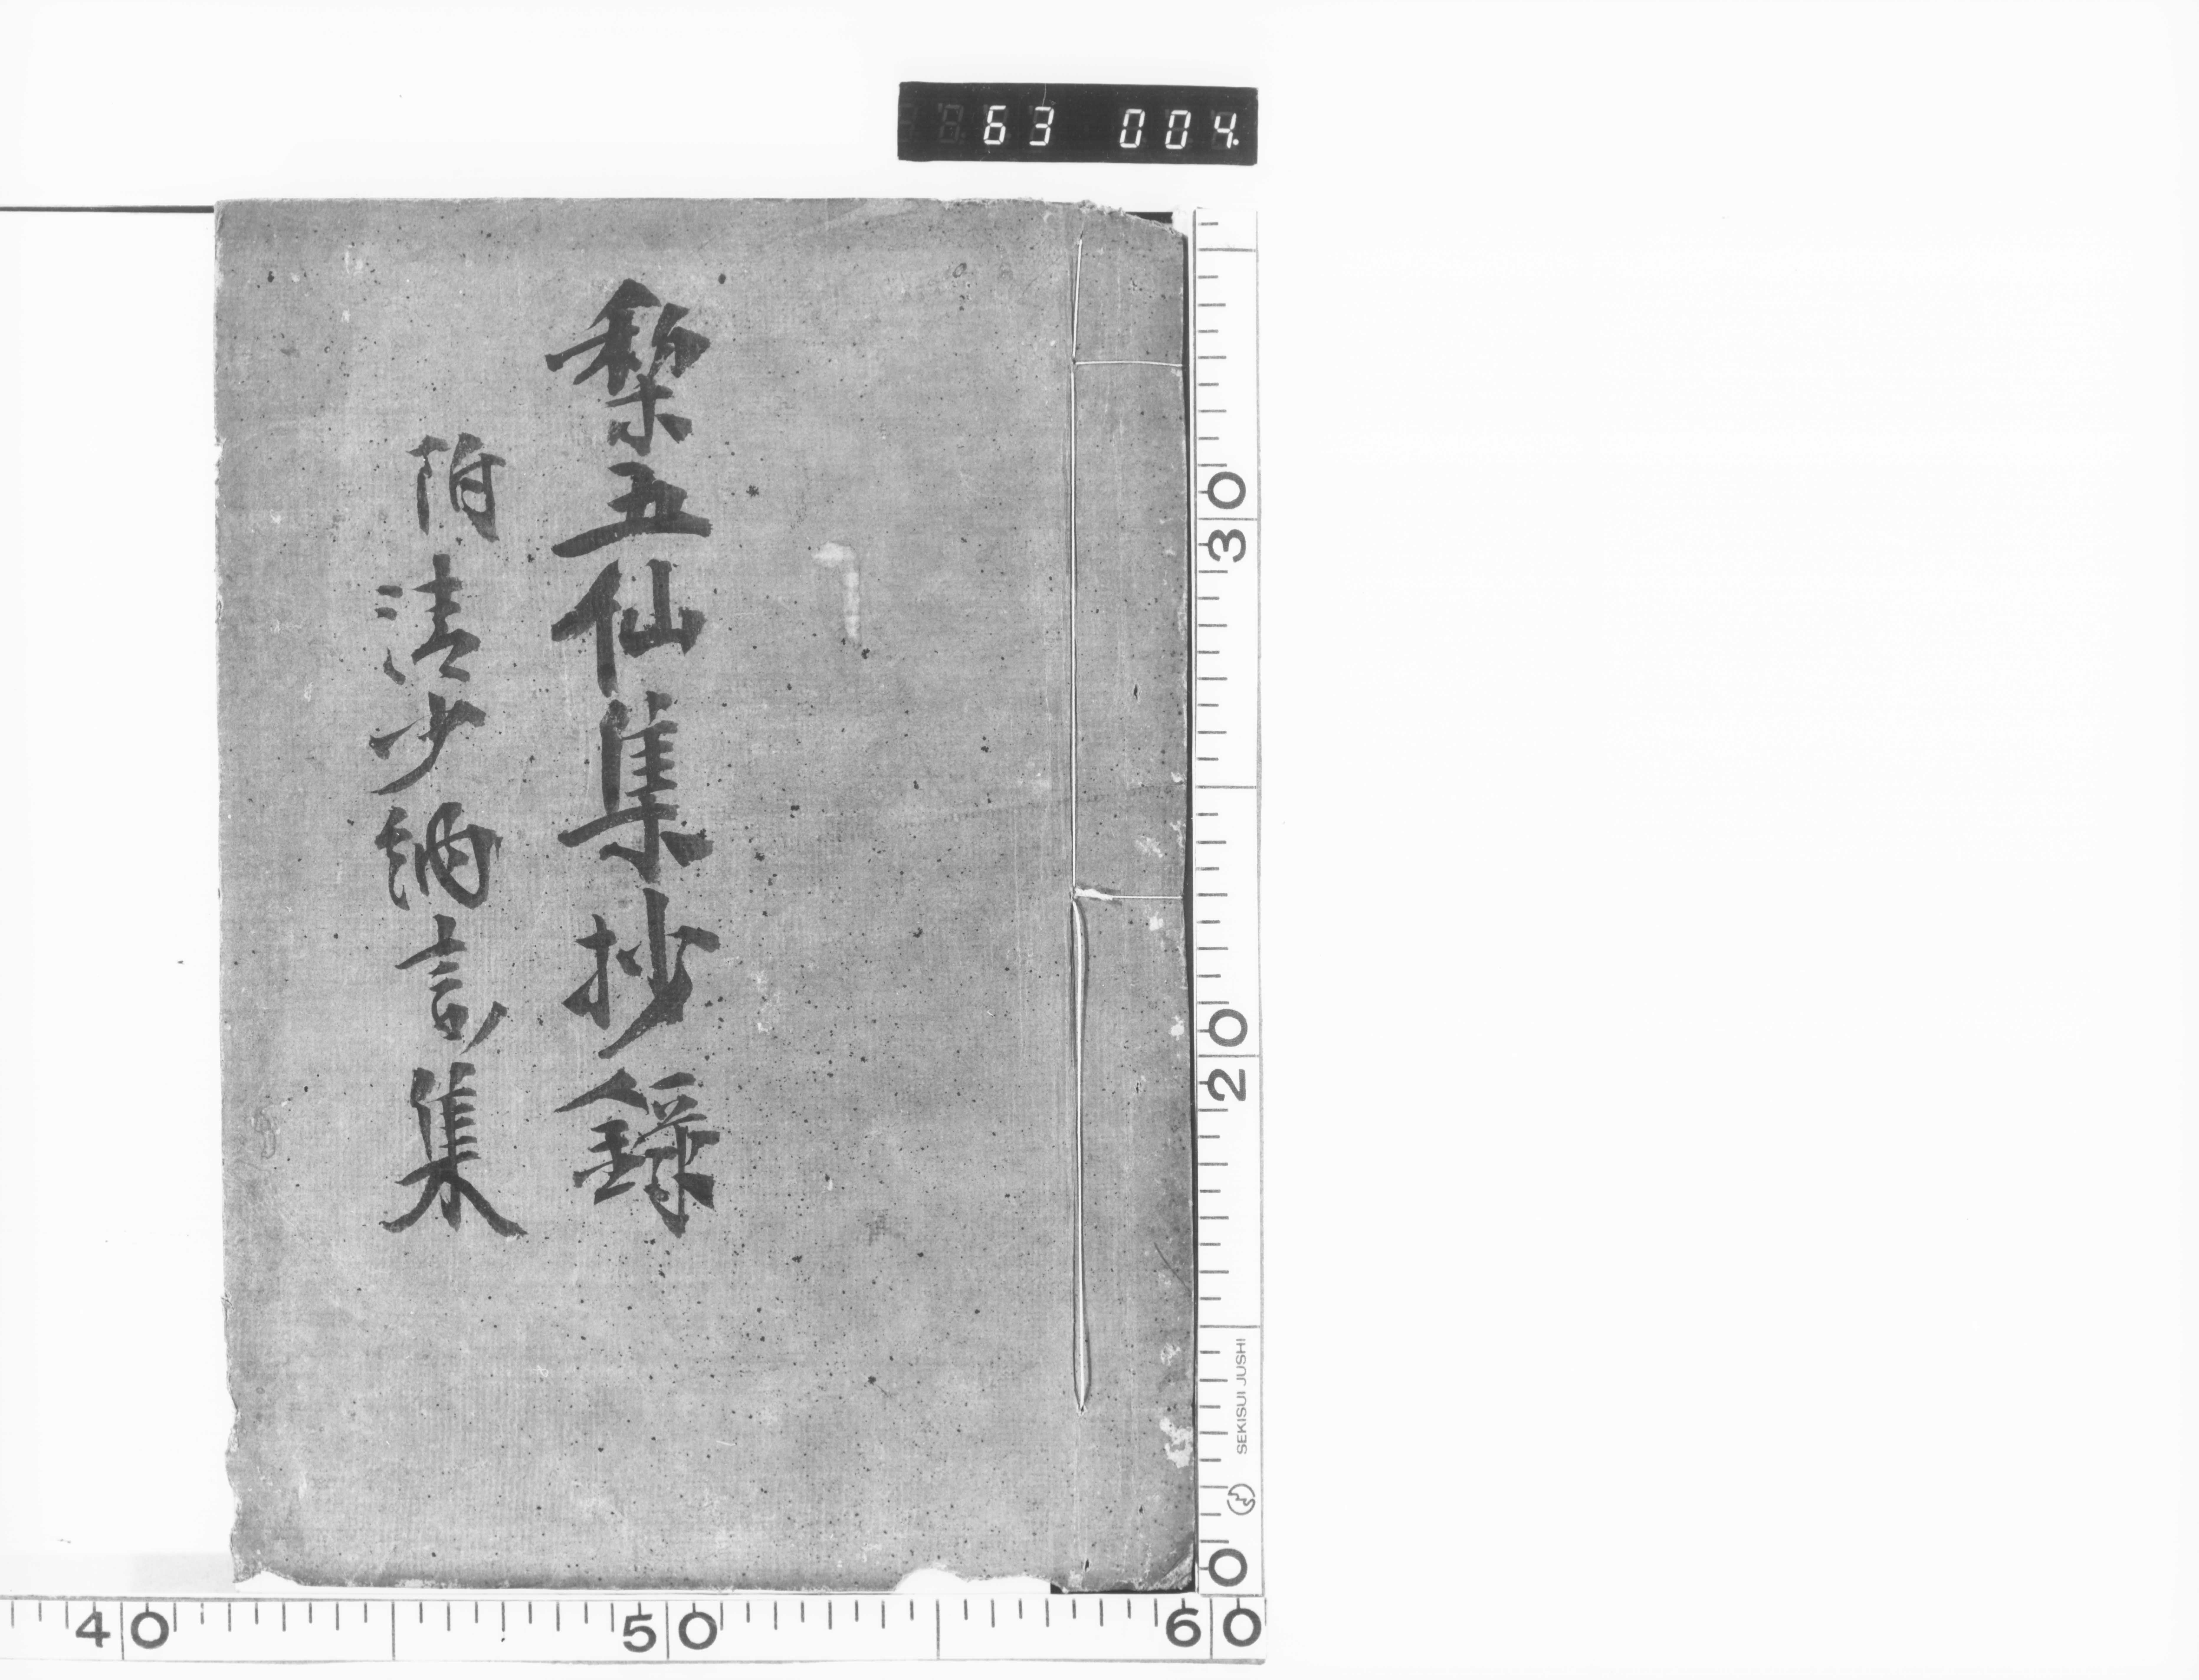 63 004.
梨五仙集抄録
附清少納言集
30
20
SEKISUI JUSHI
0
40
50
60